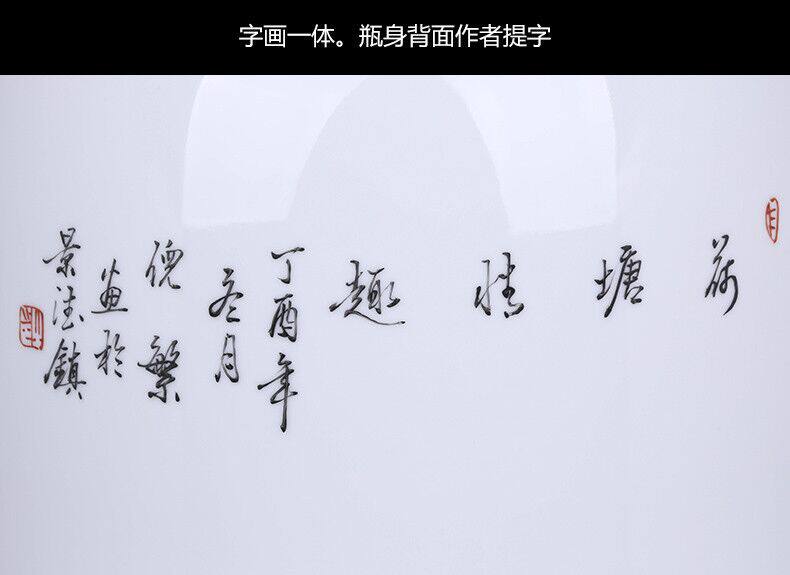 字画一体。瓶身背面作者提字
荷塘情趣
丁酉年
冬月
倪繁
画於
景德鎮